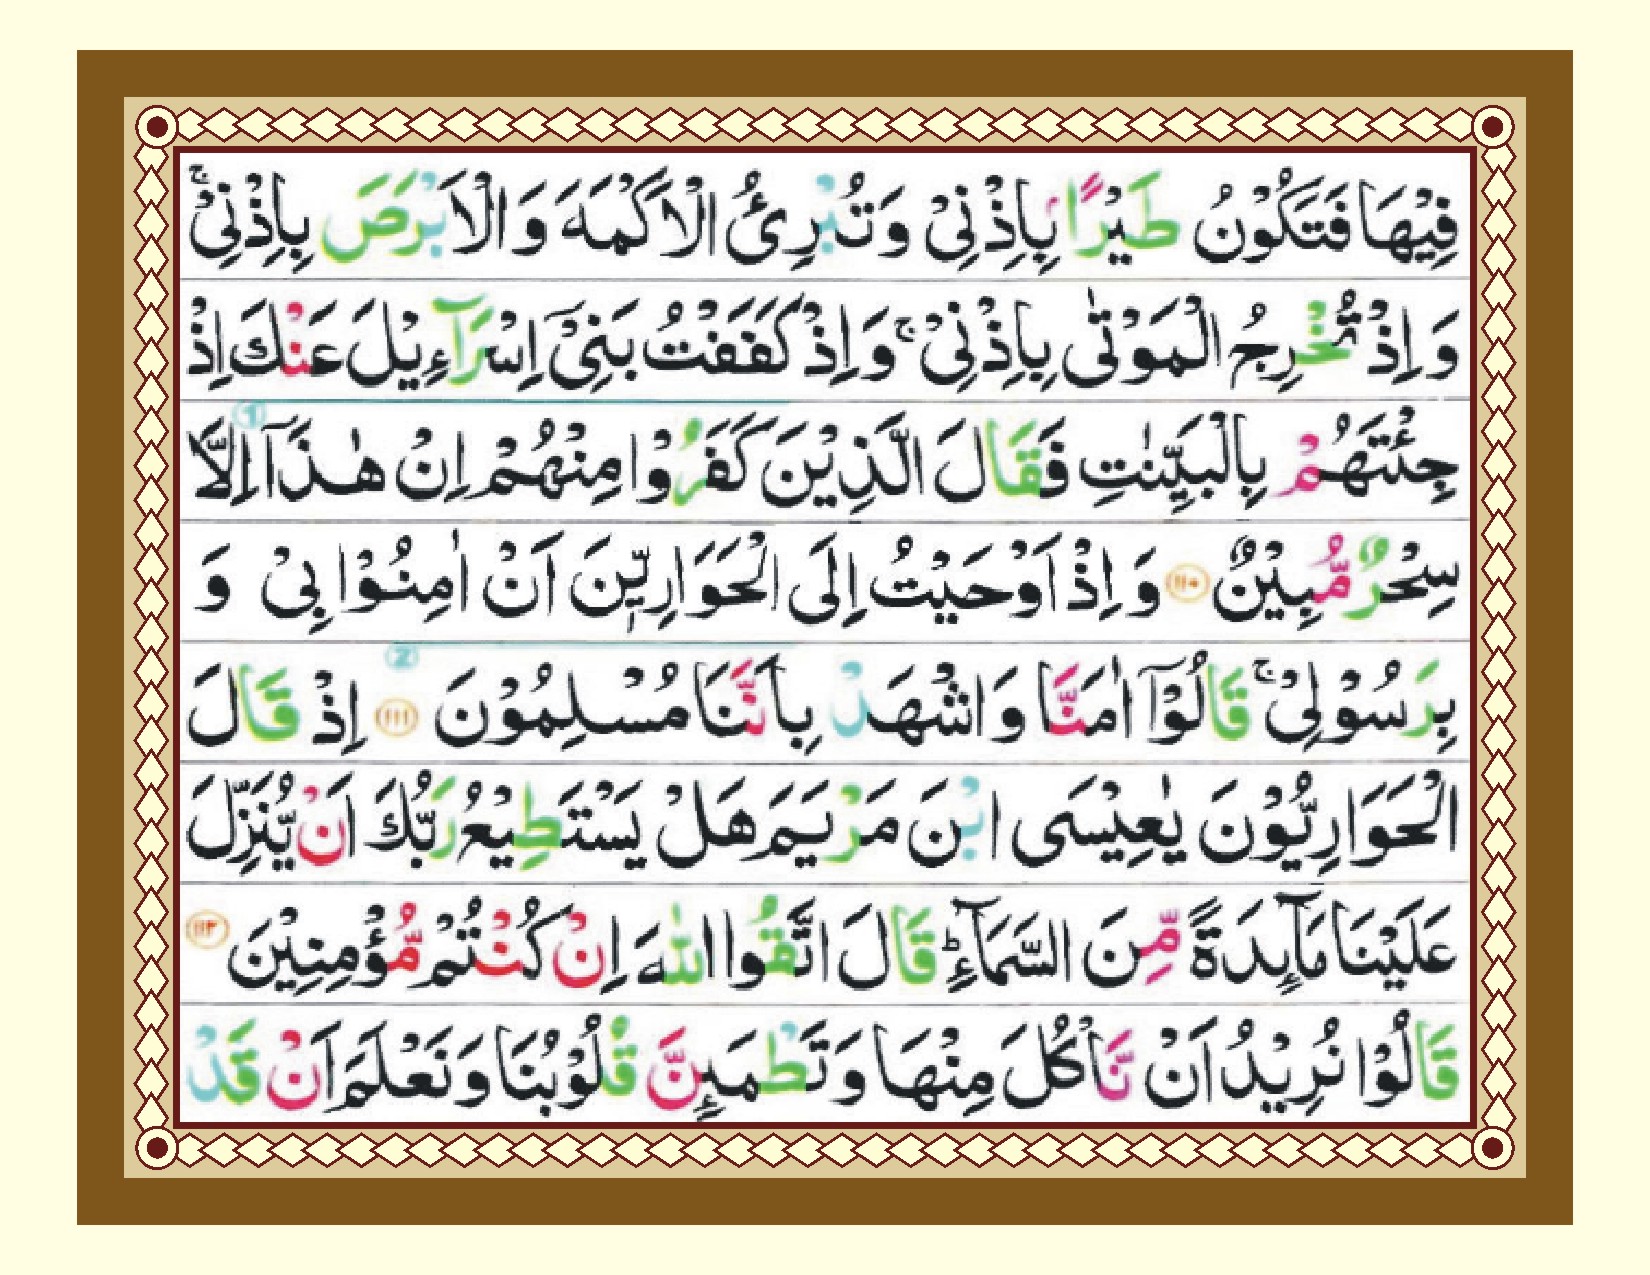 فِيْهَا فَتَكُوْنُ طَيْرًۢا بِاِذْنِيْ وَتُبْرِئُ الْاَكْمَهَ وَ الْاَبْرَصَ بِاِذْنِيْ ۚ
وَ اِذْ تُخْرِجُ الْمَوْتٰى بِاِذْنِيْ ۚ وَ اِذْ كَفَفْتُ بَنِيْۤ اِسْرَآءِيْلَ عَنْكَ اِذْ
جِئْتَهُمْ بِالْبَيِّنٰتِ فَقَالَ الَّذِيْنَ كَفَرُوْا مِنْهُمْ اِنْ هٰذَاۤ اِلَّا
سِحْرٌ مُّبِيْنٌ ﴿۱۱۰﴾ وَ اِذْ اَوْحَيْتُ اِلَى الْحَوَارِيّٖنَ اَنْ اٰمِنُوْا بِيْ وَ
بِرَسُوْلِيْ ۚ قَالُوْۤا اٰمَنَّا وَ اشْهَدْ بِاَنَّنَا مُسْلِمُوْنَ ﴿۱۱۱﴾ اِذْ قَالَ
الْحَوَارِيُّوْنَ يٰعِيْسَى ابْنَ مَرْيَمَ هَلْ يَسْتَطِيْعُ رَبُّكَ اَنْ يُّنَزِّلَ
عَلَيْنَا مَآىِٕدَةً مِّنَ السَّمَآءِ ؕ قَالَ اتَّقُوا اللّٰهَ اِنْ كُنْتُمْ مُّؤْمِنِيْنَ ﴿۱۱۲﴾
قَالُوْا نُرِيْدُ اَنْ نَّاْكُلَ مِنْهَا وَ تَطْمَىِٕنَّ قُلُوْبُنَا وَ نَعْلَمَ اَنْ قَدْ